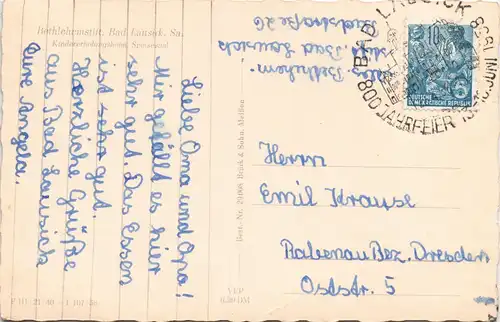 Bethlehemstift, Bad Lausick, Sa.
Kindererholungsheim
Liebe Oma und Opa!
Mir gefällt es hier
sehr gut. Das Essen
ist sehr gut.
Herzliche Grüße
aus Bad Lausick
Eure Angela.
Best.-Nr. 21/088 Brück & Sohn, Meißen
VEP
0,20 DM
Bethlehem-
stift Bad Lausick
BAD LAUSICK
800 JAHRFEIER
10
DEUTSCHE
DEMOKRATISCHE REPUBLIK
Herrn
Emil Krause
Rabenau Bez. Dresden
Oststr. 5